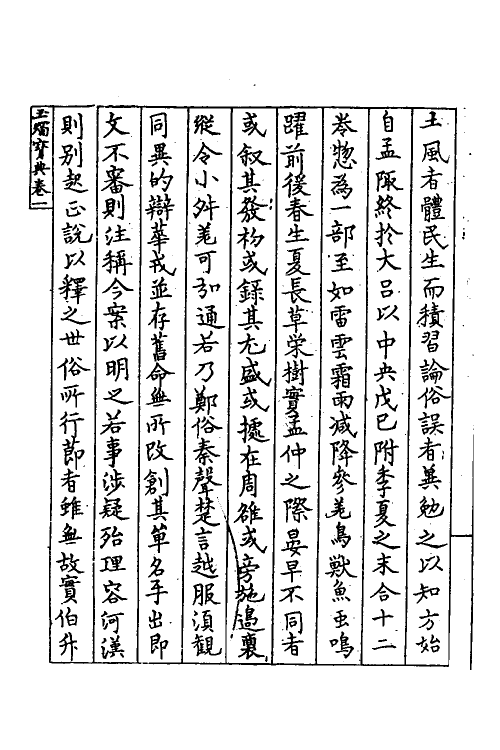 土風者體民生而積習論俗誤者冀勉之以知方始
自孟陬終於大呂以中央戊巳附季夏之末合十二
卷惣為一部至如雷雲霜雨减降參差鳥獸魚虫鳴
躍前後春生夏長草荣樹實孟仲之際晏早不同者
或叙其發初或錄其尤盛或據在周雒或旁施邉裔
縱令小舛差可引通若乃鄭俗秦聲楚言越服須觀
同異的辯華戎並存舊命無所改創其單名乎出即
文不審則注稱今案以明之若事涉疑殆理容河漢
則别起正說以釋之世俗所行節者雖無故實伯升
玉燭寶典卷一